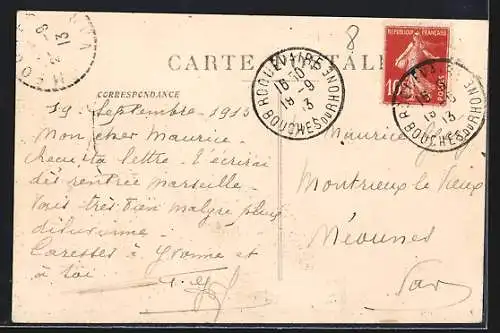 MÉOUNES VAR
-9
13
8
CARTE POSTALE
RÉPUBLIQUE FRANÇAISE
10
POSTES
ROQUEVAIRE
16 30
19 -9
13
BOUCHES DU RHONE
ROQUEVAIRE
16
19 -9
13
BOUCHES DU RHONE
CORRESPONDANCE
19 Septembre 1913
Mon cher Maurice.
Reçu ta lettre. t'écrirai
dès rentrée marseille.
Vais très bien malgré pluie
diluvienne.
Caresses à Yvonne et
à toi
Maurice
Montrieux le Vieux
Méounes
Var